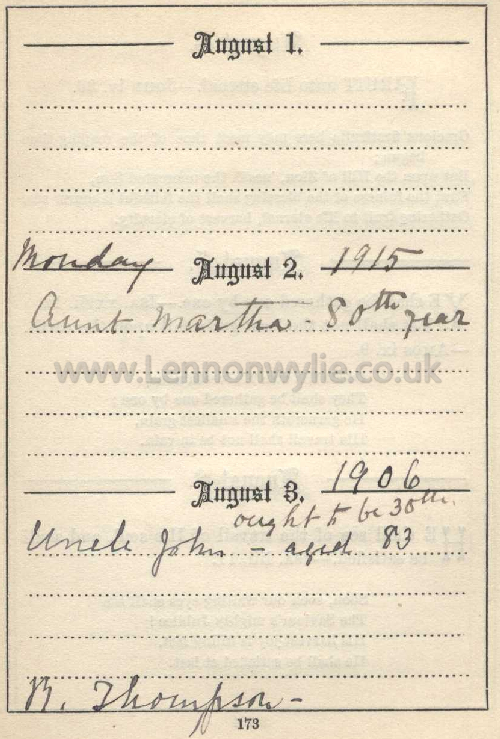 August 1.
Monday August 2. 1915
Aunt Martha - 80th year
www.Lennonwylie.co.uk
August 3. 1906
ought to be 30th.
Uncle John - aged 83
R. Thompson -
173